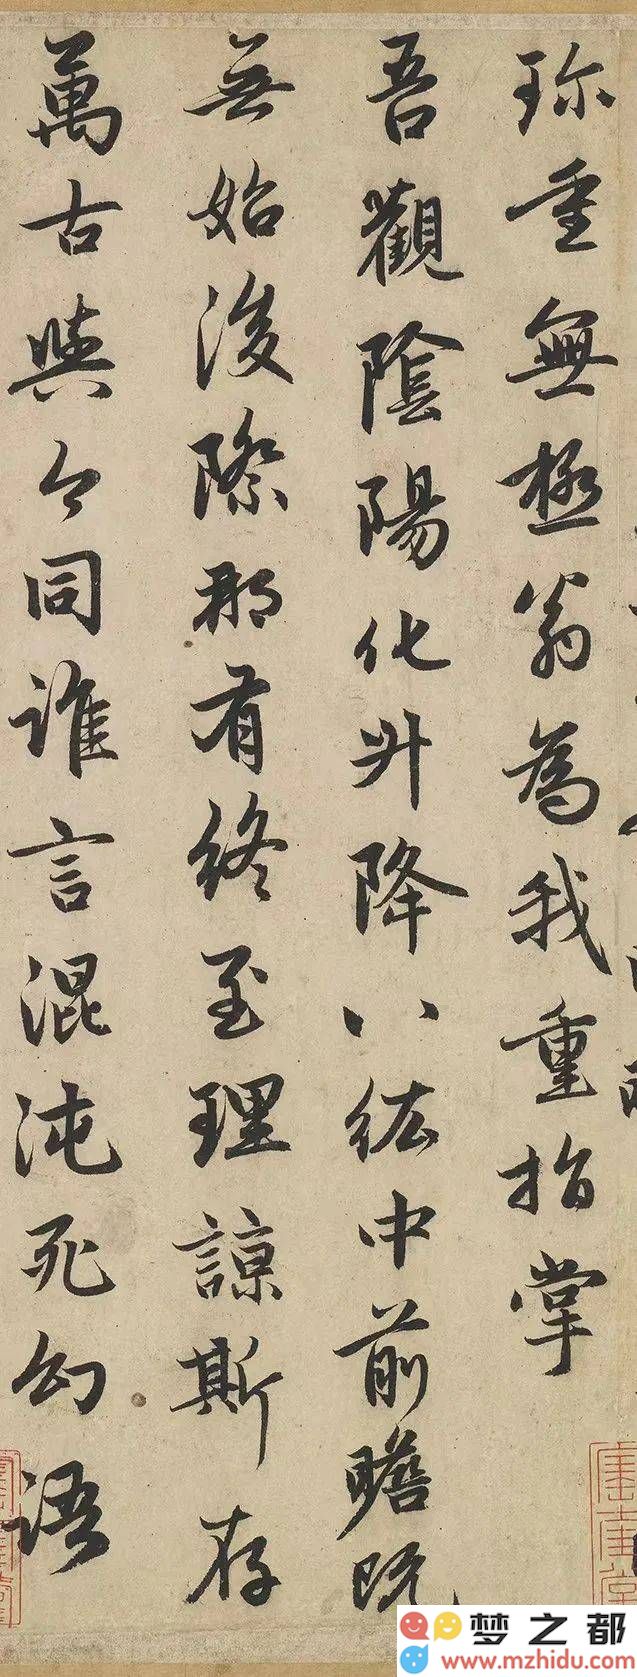 珎重無極翁為我重指掌
吾觀陰陽化升降八紘中前瞻既
無始後際那有終至理諒斯存
萬古與今同誰言混沌死幻語
梦之都
www.mzhidu.com